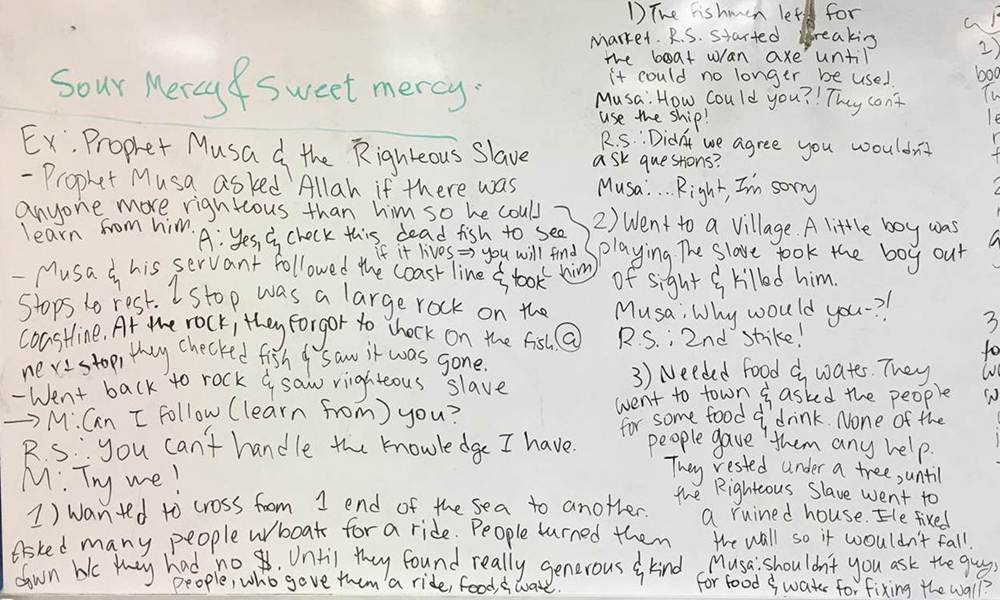 Sour Mercy & Sweet mercy.
Ex: Prophet Musa & the Righteous Slave
- Prophet Musa asked Allah if there was
anyone more righteous than him so he could
learn from him.
A: Yes, & check this dead fish to see
if it lives => you will find
him
- Musa & his servant followed the coast line & took
stops to rest. 1 stop was a large rock on the
coastline. At the rock, they forgot to check on the fish. @
next stop, they checked fish & saw it was gone.
- Went back to rock & saw riighteous slave
→ M: Can I follow (learn from) you?
R.S.: You can't handle the knowledge I have.
M: Try me!
1) Wanted to cross from 1 end of the sea to another.
Asked many people w/boats for a ride. People turned them
down b/c they had no $. Until they found really generous & kind
people, who gave them a ride, food, & wate.
1) The fishmen left for
market. R.S. started breaking
the boat w/an axe until
it could no longer be used.
Musa: How could you?! They can't
use the ship!
R.S.: Didn't we agree you wouldn't
ask questions?
Musa: ... Right, I'm sorry
2) Went to a village. A little boy was
playing. The slave took the boy out
of sight & killed him.
Musa: Why would you-?!
R.S.: 2nd strike!
3) Needed food & water. They
went to town & asked the people
for some food & drink. None of the
people gave them any help.
They rested under a tree, until
the Righteous Slave went to
a ruined house. He fixed
the wall so it wouldn't fall.
Musa: shouldn't you ask the guys
for food & water for fixing the wall?
2)
3)